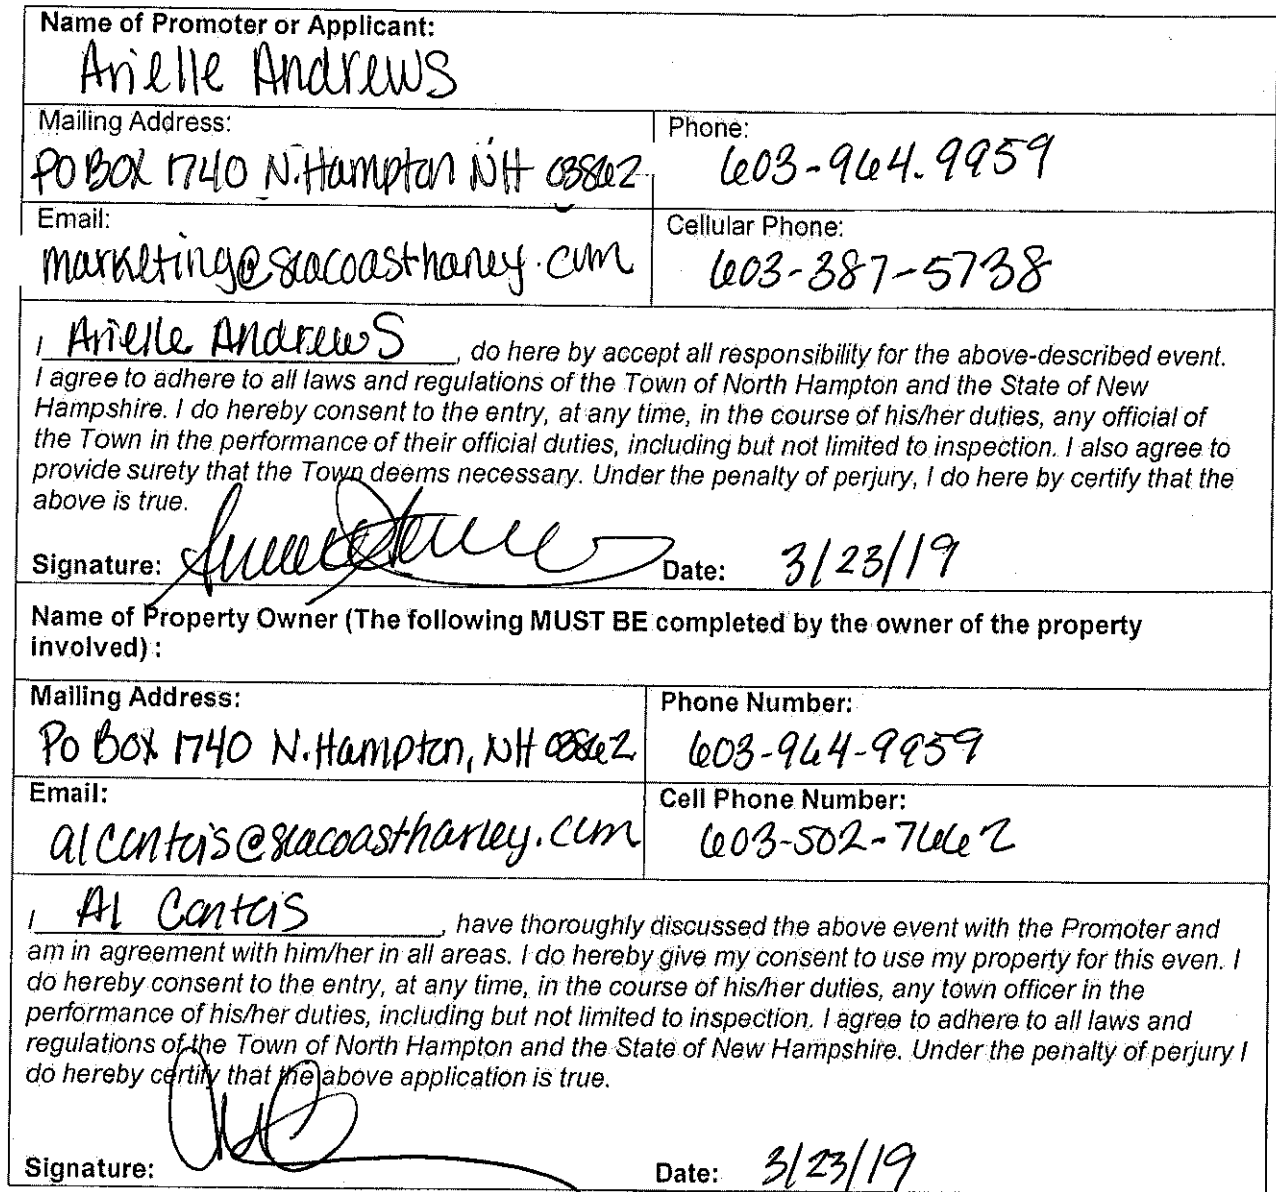 Name of Promoter or Applicant:
Arielle Andrews
Mailing Address:
PO BOX 1740 N. Hampton NH 03862
Phone:
603-964.9959
Email:
marketing@seacoastharley.com
Cellular Phone:
603-387-5738
I Arielle Andrews, do here by accept all responsibility for the above-described event.
I agree to adhere to all laws and regulations of the Town of North Hampton and the State of New
Hampshire. I do hereby consent to the entry, at any time, in the course of his/her duties, any official of
the Town in the performance of their official duties, including but not limited to inspection. I also agree to
provide surety that the Town deems necessary. Under the penalty of perjury, I do here by certify that the
above is true.
Signature: Date: 3/23/19
Name of Property Owner (The following MUST BE completed by the owner of the property
involved) :
Mailing Address:
Po Box 1740 N. Hampton, NH 03862
Phone Number:
603-964-9959
Email:
alcontois@seacoastharley.com
Cell Phone Number:
603-502-7662
I Al Contois, have thoroughly discussed the above event with the Promoter and
am in agreement with him/her in all areas. I do hereby give my consent to use my property for this even. I
do hereby consent to the entry, at any time, in the course of his/her duties, any town officer in the
performance of his/her duties, including but not limited to inspection. I agree to adhere to all laws and
regulations of the Town of North Hampton and the State of New Hampshire. Under the penalty of perjury I
do hereby certify that the above application is true.
Signature: Date: 3/23/19